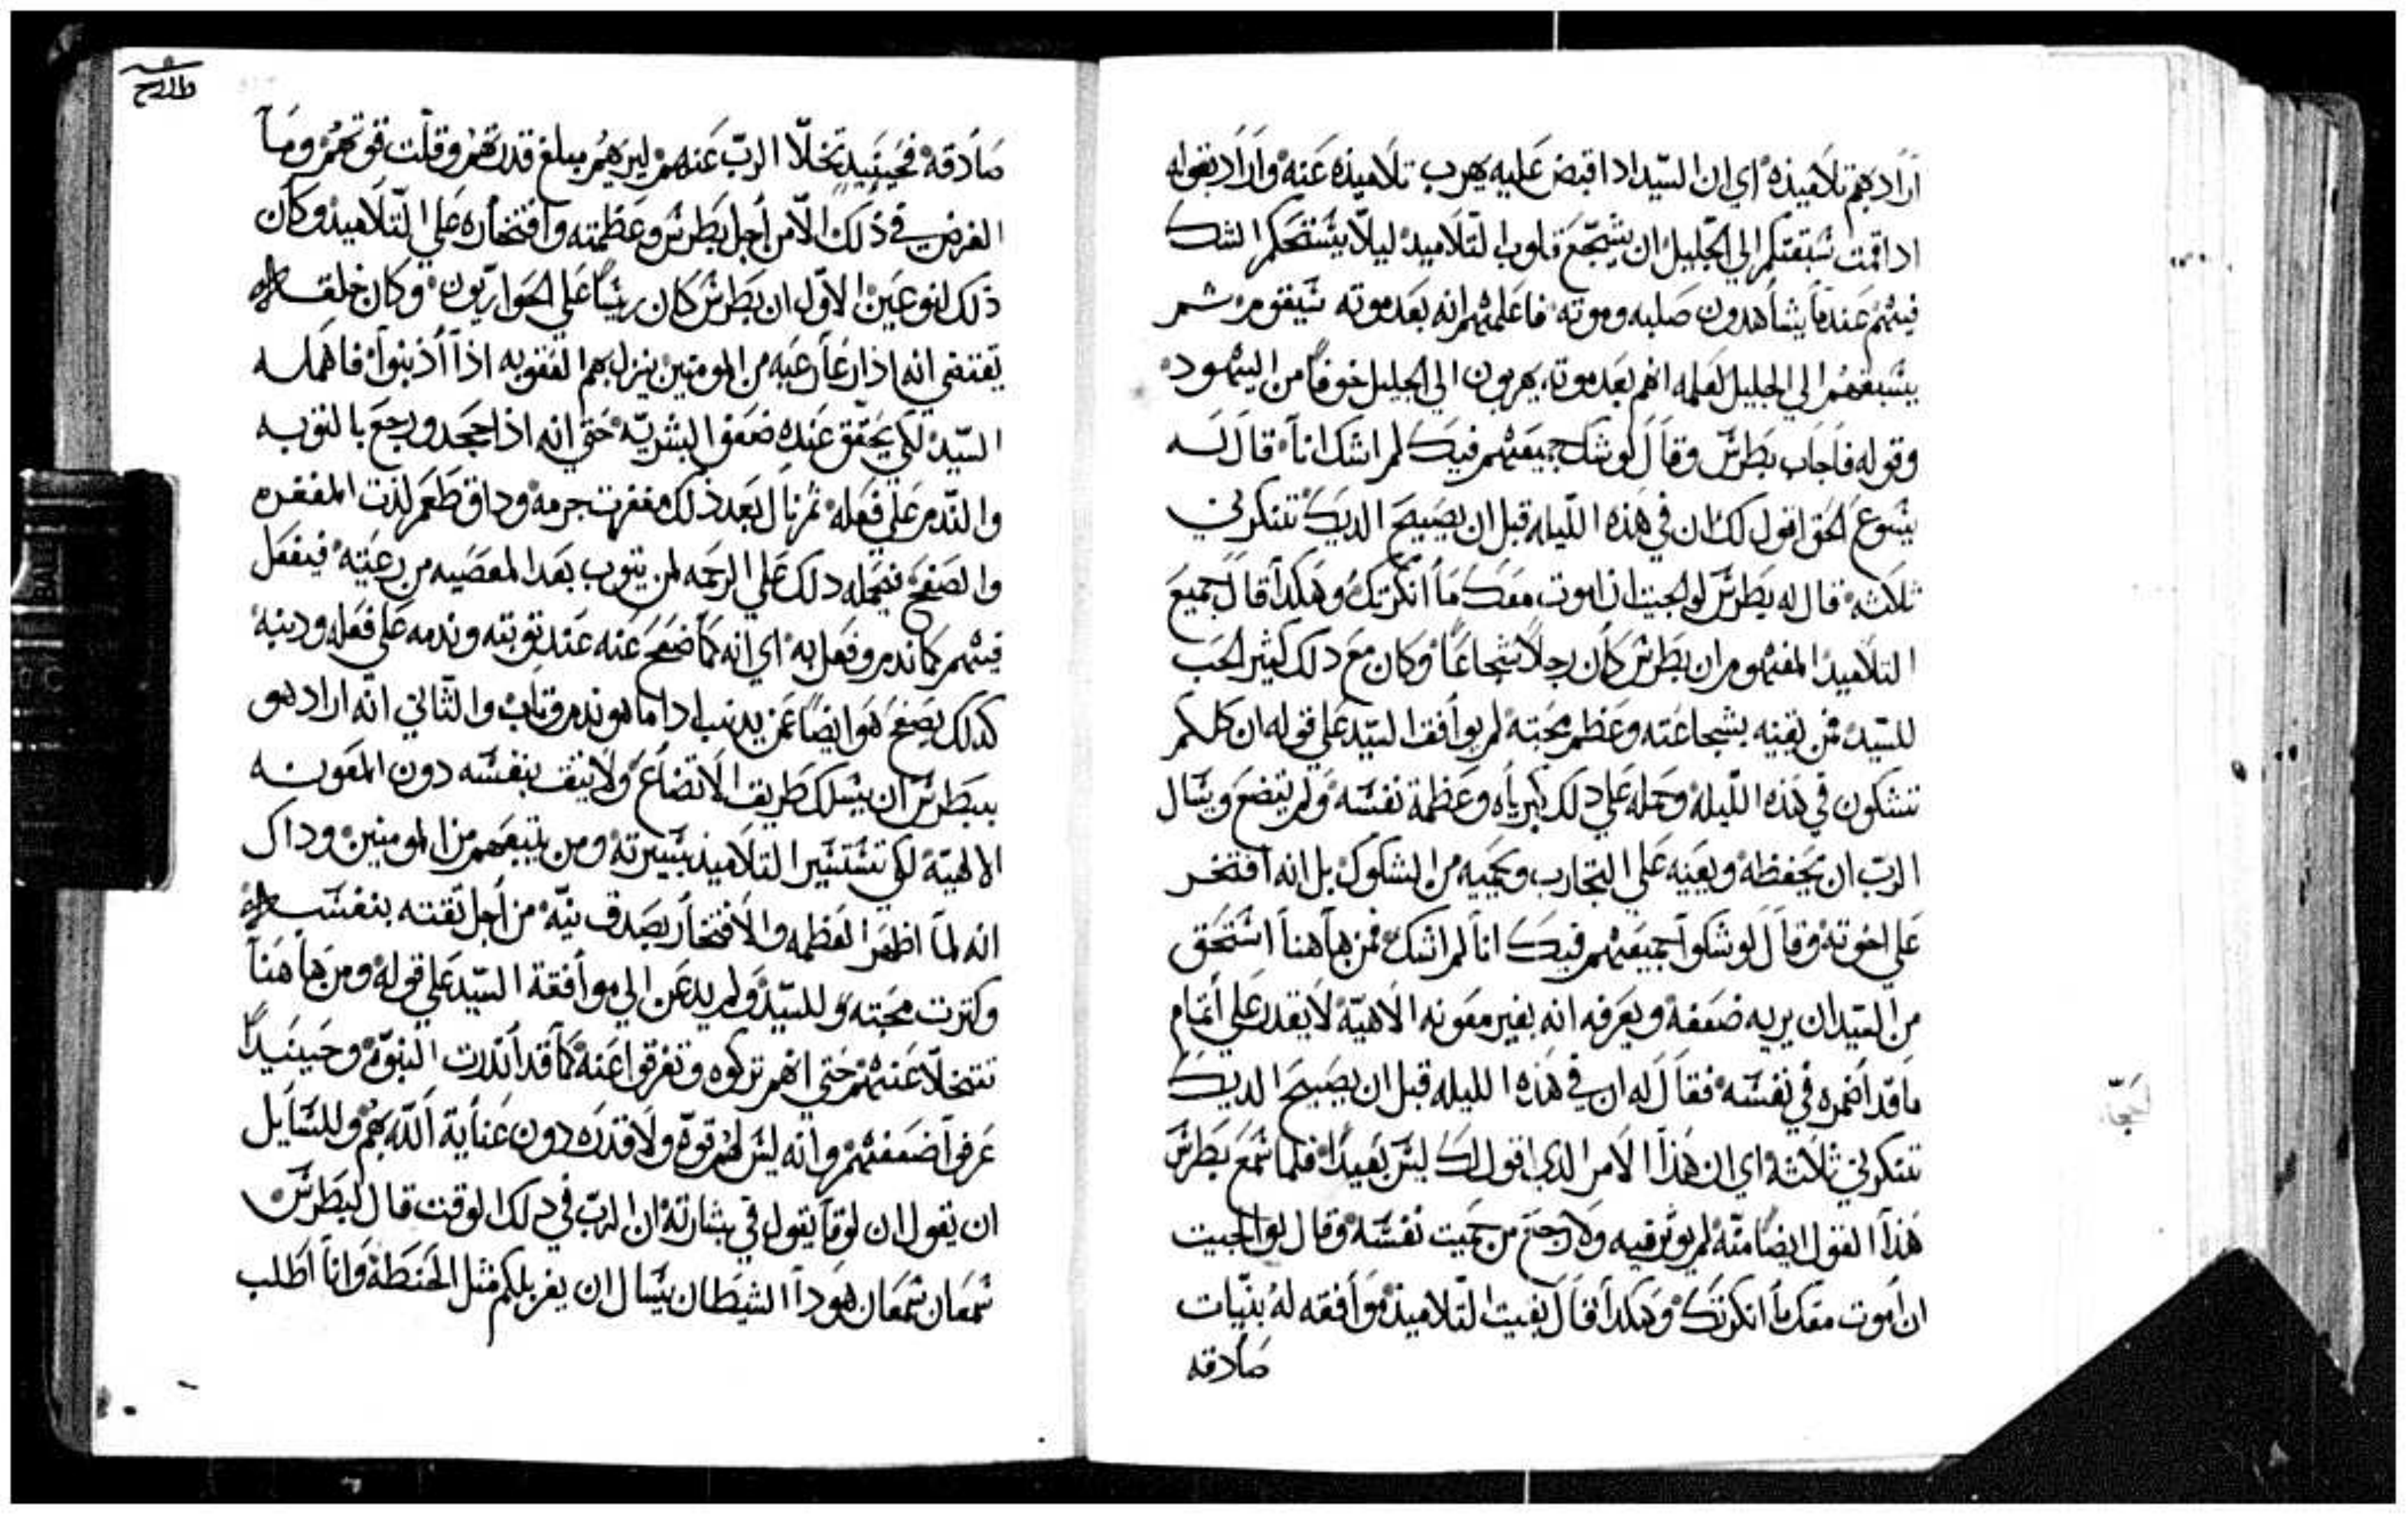 اراد بهم تلاميذه اي ان السيد ادا قبض عليه يهرب تلاميذه عنه واراد بقوله
ادا قمت سبقتكم الي الجليل ان يشجع قلوب التلاميد ليلا يستحكم الشك
فيهم عندما يشاهدون صلبه وموته فاعلمهم انه بعد موته سيقوم ثم
يسبقهم الي الجليل لعلمه انهم بعد موته يهربون الي الجليل خوفا من اليهود
وقوله فاجاب بطرس وقال لو شك جميعهم فيك لم اشك انا قال له
يسوع الحق اقول لك ان في هذه الليله قبل ان يصيح الديك تنكرني
ثلاثه قال له بطرس لو الجيت ان اموت معك ما انكرتك وهكدا قال جميع
التلاميد المفهوم ان بطرس كان رجلا شجاعا وكان مع دلك كثير الحب
للسيد فمن يقينه بشجاعته وعظم محبته لم يوافق السيد علي قوله ان كلكم
تشكون في هذه الليله وحمله علي دلك كبرياه وعظمة نفسه ولم يتضع ويسال
الرب ان يحفظه ويعينه علي التجارب وينجيه من الشكوك بل انه افتخر
علي اخوته وقال لو شكوا جميعهم فيك انا لم اشك فمن هاهنا استحق
من السيد ان يريه ضعفه ويعرفه انه بغير معونه الاهية لا يقدر علي اتمام
ما قد اضمره في نفسه فقال له ان في هذه الليله قبل ان يصيح الديك
تنكرني ثلاثه اي ان هذا الامر الدي اقول لك ليس بعيدا فلما سمع بطرس
هذا القول ايضا منه لم يوثر فيه ولا رجع من حميت نفسه وقال لو الجيت
ان اموت معك ما انكرتك وهكدا قال بقيت التلاميذ موافقه له بنيات
صادقه
صادقه فحينيد تخلا الرب عنهم ليريهم مبلغ قدرتهم وقلت قوتهم وما
الغرض في ذلك الا من اجل بطرس وعظمته وافتخاره علي التلاميد وكان
ذلك لنوعين الاول ان بطرس كان ريسا علي الحواريون وكان خلقه
يقتضي انه اذا رعا رعيه من المومنين ينزل بهم العقوبه اذا أذنبوا فاهمله
السيد لكي يحقق عنده ضعف البشرية حتي انه اذا جحد ورجع بالتوبه
والندم علي فعله ثم نال بعد ذلك مغفرت جرمه وداق طعم لذت المغفره
والصفح فيحمله دلك علي الرحمه لمن يتوب بعد المعصيه من رعيته فيفعل
فيهم كما ندم وفعل به اي انه كما صفح عنه عند توبته وندمه علي فعله ودنبه
كدلك يصفح هو ايضا عمن يدنب ادا ما هو ندم وتاب والثاني انه اراد هو
ببطرس ان يسلك طريق الاتضاع ولا يثق بنفسه دون المعونه
الالهية لكي تستنير التلاميد بسيرته ومن يتبعهم من المومنين وداك
انه لما اظهر العظمه والافتخار بصدق نية من اجل ثقته بنفسه
وكثرت محبته للسيد ولم يدعن الي موافقة السيد علي قوله ومن هاهنا
تتخلا عنهم حتي انهم تركوه وتفرقوا عنه كما قد اندرت النبوة وحينيدا
عرفوا ضعفهم وانه ليس لهم قوة ولا قدره دون عناية الله بهم وللسايل
ان يقول ان لوقا يقول في بشارته ان الرب في دلك الوقت قال لبطرس
سمعان سمعان هودا الشيطان يسال ان يغربلكم مثل الحنطة وانا اطلب